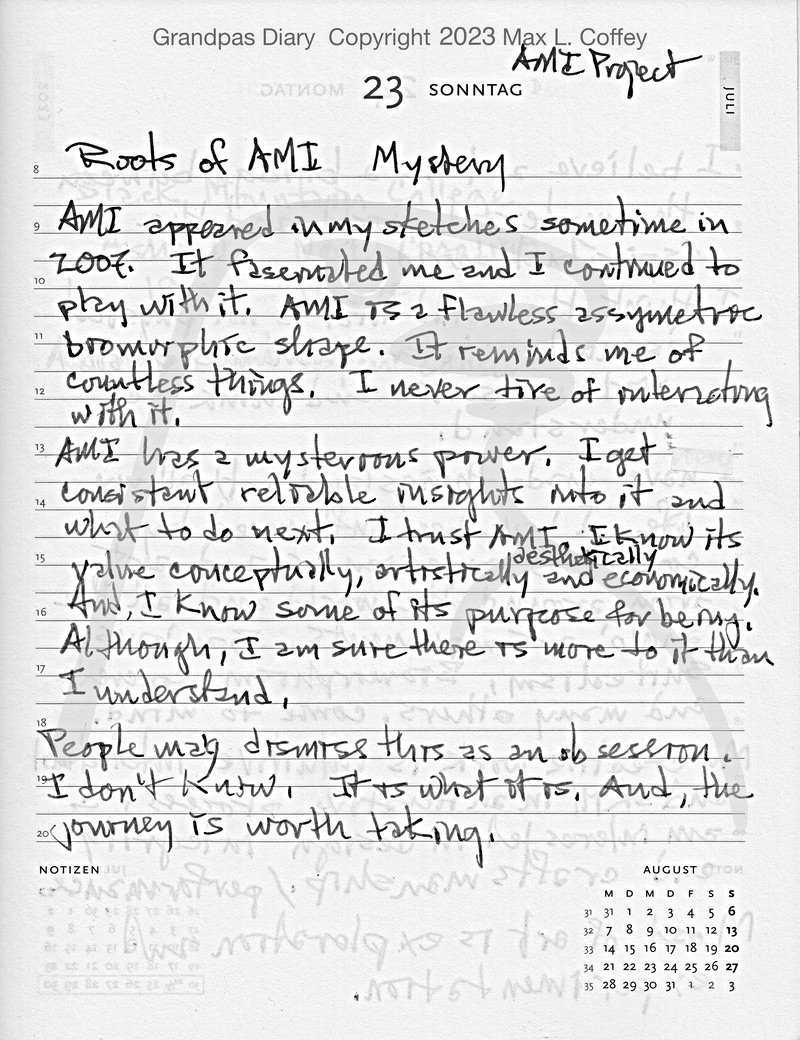 Grandpas Diary Copyright 2023 Max L. Coffey
AMI Project
23 SONNTAG
JULI
8 Roots of AMI Mystery
9 AMI appeared in my sketches sometime in
2007. It fascinated me and I continued to
10 play with it. AMI is a flawless assymetric
11 biomorphic shape. It reminds me of
12 countless things. I never tire of interacting
with it.
13 AMI has a mysterious power. I get
14 consistant reliable insights into it and
what to do next. I trust AMI. I know its
aesthetically
15 value conceptually, artistically and economically.
16 And, I know some of its purpose for being.
Although, I am sure there is more to it than
17 I understand.
18 People may dismiss this as an obsession.
19 I don't know. It is what it is. And, the
20 journey is worth taking.
NOTIZEN
AUGUST
M D M D F S S
31 31 1 2 3 4 5 6
32 7 8 9 10 11 12 13
33 14 15 16 17 18 19 20
34 21 22 23 24 25 26 27
35 28 29 30 31 1 2 3